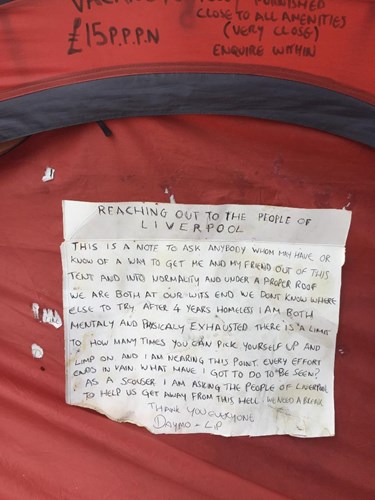 FURNISHED
£15 P.P.P.N
CLOSE TO ALL AMENITIES
(VERY CLOSE)
ENQUIRE WITHIN
REACHING OUT TO THE PEOPLE OF
LIVERPOOL
THIS IS A NOTE TO ASK ANYBODY WHOM MAY HAVE OR
KNOW OF A WAY TO GET ME AND MY FRIEND OUT OF THIS
TENT AND INTO NORMALITY AND UNDER A PROPER ROOF
WE ARE BOTH AT OUR WITS END WE DONT KNOW WHERE
ELSE TO TRY. AFTER 4 YEARS HOMELESS I AM BOTH
MENTALY AND PHSICALY EXHAUSTED THERE IS A LIMIT
TO HOW MANY TIMES YOU CAN PICK YOURSELF UP AND
LIMP ON AND I AM NEARING THIS POINT. EVERY EFFORT
ENDS IN VAIN. WHAT HAVE I GOT TO DO TO BE SEEN?
AS A SCOUSER I AM ASKING THE PEOPLE OF LIVERPOOL
TO HELP US GET AWAY FROM THIS HELL. WE NEED A BREAK
THANK YOU EVERYONE
DAYMO